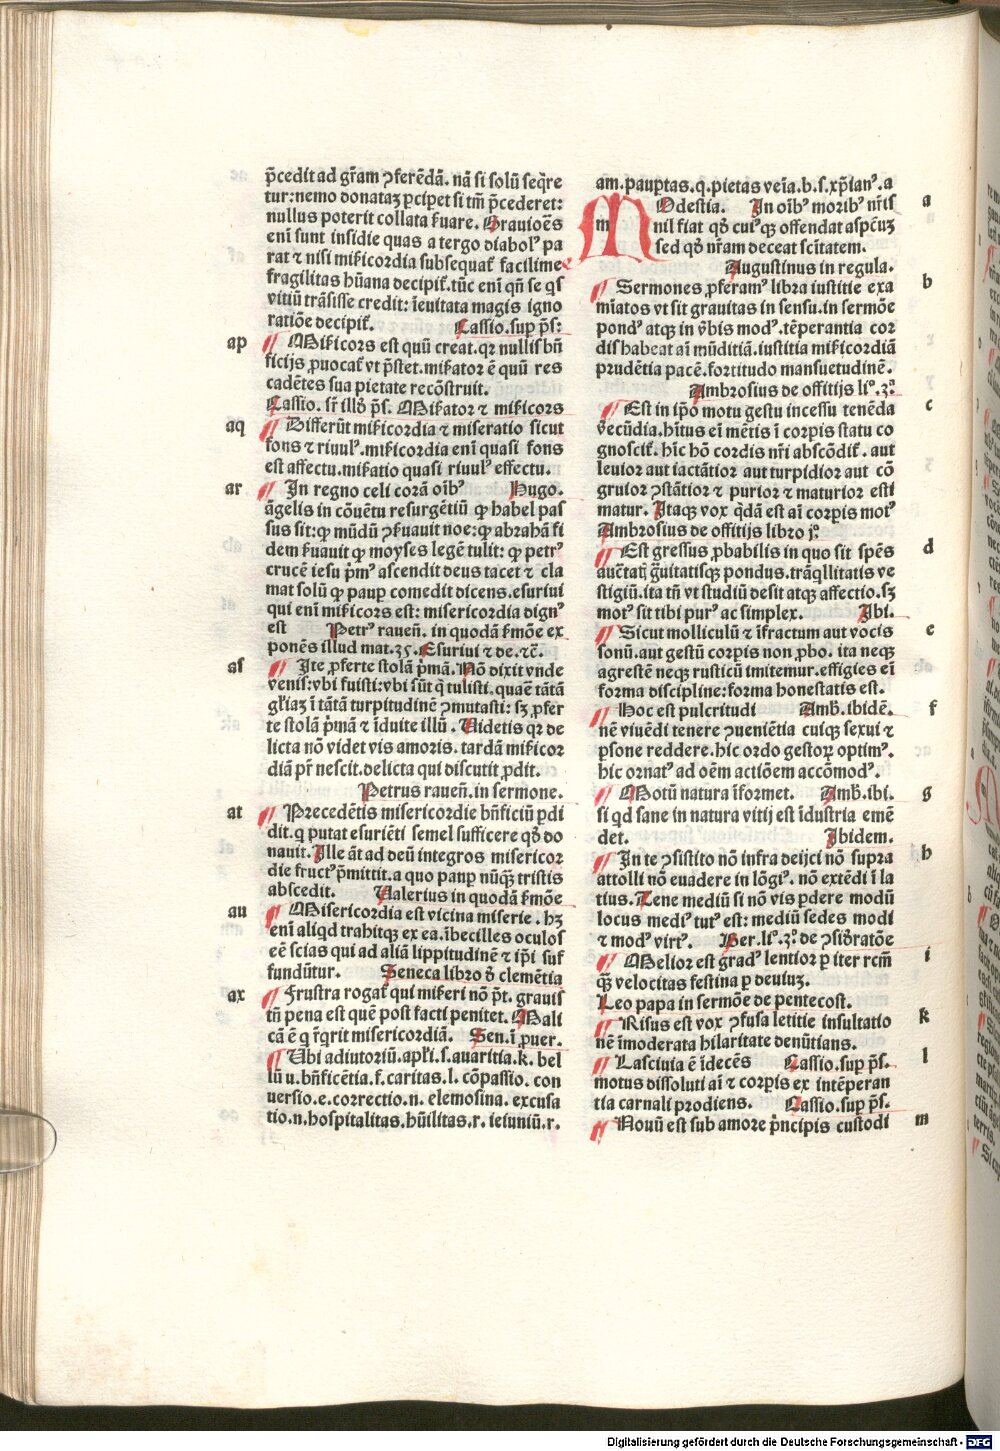 p̄cedit ad gr̄am ꝯferēdā. nā si solū seq̄re
tur: nemo donataꝫ ꝑcipet si tm̄ p̄cederet:
nullus poterit collata ẜuare. Grauioēs
eni sunt insidie quas a tergo diabolꝰ pa
rat ⁊ nisi miẜicordia subsequat̄ facilime
fragilitas hūana decipit̄. tūc eni qn̄ se qs
vitiū trāsisse credit: ieuitata magis igno
ratiōe decipit̄. Cassio. sup ps̄:
ap Miẜicors est quū creat. qꝛ nullis bn̄
ficijs ꝓuocat̄ vt p̄stet. miẜator ē quū res
cadētes sua pietate recōstruit.
Cassio. sr̄ illd̄ ps̄. Miẜator ⁊ miẜicors
aq Differūt miẜicordia ⁊ miseratio sicut
fons ⁊ riuulꝰ. miẜicordia eni quasi fons
est affectu. miẜatio quasi riuulꝰ effectu.
ar In regno celi corā oībꝰ Hugo.
āgelis in cōuētu resurgētiū ꝙ habel pas
sus sit: ꝙ mūdū ꝯẜuauit noe: ꝙ abrahā fi
dem ẜuauit ꝙ moyses legē tulit: ꝙ petrꝰ
crucē iesu p̄mꝰ ascendit deus tacet ⁊ cla
mat solū ꝙ pauꝑ comedit dicens. esuriui
qui eni miẜicors est: misericordia dignꝰ
est Petrꝰ raueñ. in quodā ẜmōe ex
ponēs illud mat. 35. Esuriui ⁊ de. ⁊c̄.
as Ite ꝓferte stolā p̄mā. Nō dixit vnde
venis: vbi fuisti: vbi sūt q̄ tulisti. quaē tātā
gl̄iaꝫ ī tātā turpitudinē ꝯmutasti: sꝫ ꝓfer
te stolā p̄mā ⁊ īduite illū. Videtis qꝛ de
licta nō videt vis amoris. tardā miẜicor
diā pr̄ nescit. delicta qui discutit ꝓdit.
Petrus raueñ. in sermone.
at Precedētis misericordie bn̄ficiū ꝑdi
dit. q putat esuriēti semel sufficere qd̄ do
nauit. Ille āt ad deū integros misericor
die fructꝰ p̄mittit. a quo pauꝑ nūq̄ꝫ tristis
abscedit. Valerius in quodā ẜmōe
au Misericordia est vicina miserie. hꝫ
eni aliqd trahitqꝫ ex ea. ībecilles oculos
eē scias qui ad aliā lippitudinē ⁊ ip̄i suf
fundūtur. Seneca libro d̄ clemētia
ax Frustra rogat̄ qui miẜeri nō p̄t. grauis
tn̄ pena est quē post facti penitet. Mali
cā ē q̄ r̄qrit misericordiā. Sen. ī ꝓuer.
Vbi adiutoriū. apl̄i. s. auaritia. k. bel
lū u. bn̄ficētia. f. caritas. l. cōpassio. con
uersio. e. correctio. n. elemosina. excusa
tio. n. hospitalitas. hūilitas. r. ieiuniū. r.
am. pauꝑtas. q. pietas veīa. b. s. xp̄ianꝰ. a
a MOdestia. In oībꝰ moribꝰ nr̄is
m nil fiat qd̄ cuiꝰqꝫ offendat aspcūꝫ
sed qd̄ nr̄am deceat scītatem.
Augustinus in regula.
b Sermones ꝓferamꝰ libra iustitie exa
miatos vt sit grauitas in sensu. in sermōe
pondꝰ atqꝫ in v̄bis modꝰ. tēperantia cor
dis habeat ai mūditiā. iustitia miẜicordiā
prudētia pacē. fortitudo mansuetudinē.
Ambrosius de offitijs liº. 3º
c Est in ip̄o motu gestu incessu tenēda
v̄ecūdia. hītus ei mētis ī corpis statu co
gnoscit̄. hīc hō cordis nr̄i abscōdit̄. aut
leuior aut iactātior aut turpidior aut cō
gruior ꝯstātior ⁊ purior ⁊ maturior esti
matur. Itaqꝫ vox qdā est ai corpis motꝰ
Ambrosius de offitijs libro jº
d Est gressus ꝓbabilis in quo sit spēs
auc̄tatꝭ g̈uitatisqꝫ pondus. trāqllitatis ve
stigiū. ita tn̄ vt studiū desit atqꝫ affectio. sꝫ
motꝰ sit tibi purꝰ ac simplex. Ibi.
e Sicut molliculū ⁊ īfractum aut vocis
sonū. aut gestū corpis non ꝓbo. ita neqꝫ
agrestē neqꝫ rusticū imitemur. effigies ei
forma discipline: forma honestatis est.
f Hoc est pulcritudi Amb̄. ibidē.
nē viuēdi tenere ꝯueniētia cuiqꝫ sexui ⁊
psone reddere. hic ordo gestoꝝ optimꝰ.
hic ornatꝰ ad oēm actiōem accōmodꝰ.
g Motū natura īformet. Amb̄. ibi.
si qd sane in natura vitij est īdustria emē
det. Ibidem.
h In te ꝯsistito nō infra deijci nō supra
attolli nō euadere in lōgiꝰ. nō extēdi ī la
tius. Tene mediū si nō vis ꝑdere modū
locus mediꝰ tutꝰ est: mediū sedes modi
⁊ modꝰ virtꝰ. Ber. liº. 3º. de ꝯsid̄ratōe
i Melior est gradꝰ lentior ꝑ iter rcm̄
q̄ꝫ velocitas festina ꝑ deuiuꝫ.
Leo papa in sermōe de pentecost.
k Risus est vox ꝯfusa letitie insultatio
nē īmoderata hilaritate denūtians.
l Lasciuia ē idecēs Cassio. sup ps̄.
motus dissoluti ai ⁊ corpis ex intēperan
tia carnali prodiens. Cassio. sup ps̄.
m Nouū est sub amore p̄ncipis custodi
Digitalisierung gefördert durch die Deutsche Forschungsgemeinschaft - DFG